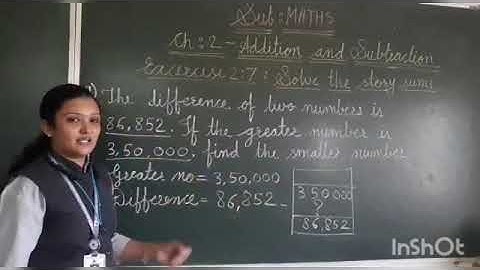 Sub: MATHS
Ch: 2 - Addition and Subtraction
Excercise 2:7: Solve the story sums
1) The difference of two numbers is
86,852. If the greater number is
3,50,000, find the smaller number
Greater no = 3,50,000
Difference = 86,852
3 50 000
- ?
86,852
InShOt